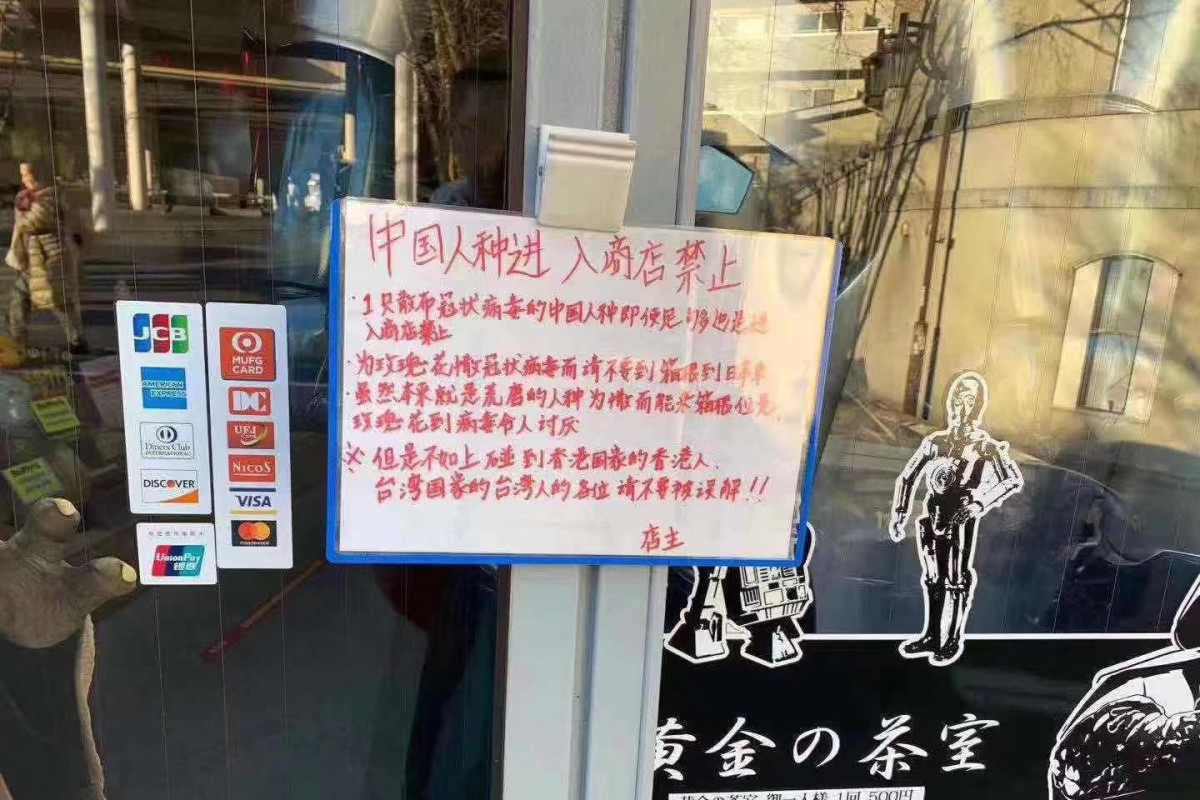 中国人种进 入商店禁止
・1只散布冠状病毒的中国人种即便足够也是进
入商店禁止
・为玫瑰花撒冠状病毒而请不要到箱根到日本来
・虽然本来就是荒磨的人种为撒而能来箱根但是,
玫瑰花到病毒令人讨厌
※但是不如上碰到香港国家的香港人、
台湾国家的台湾人的各位请不要被误解!!
店主
JCB
AMERICAN EXPRESS
Diners Club
INTERNATIONAL
DISCOVER
UnionPay
银联
MUFG
CARD
DC
UFJ
Card
NICOS
VISA
mastercard
黄金の茶室
黄金の茶室 御一人様 1回 500円